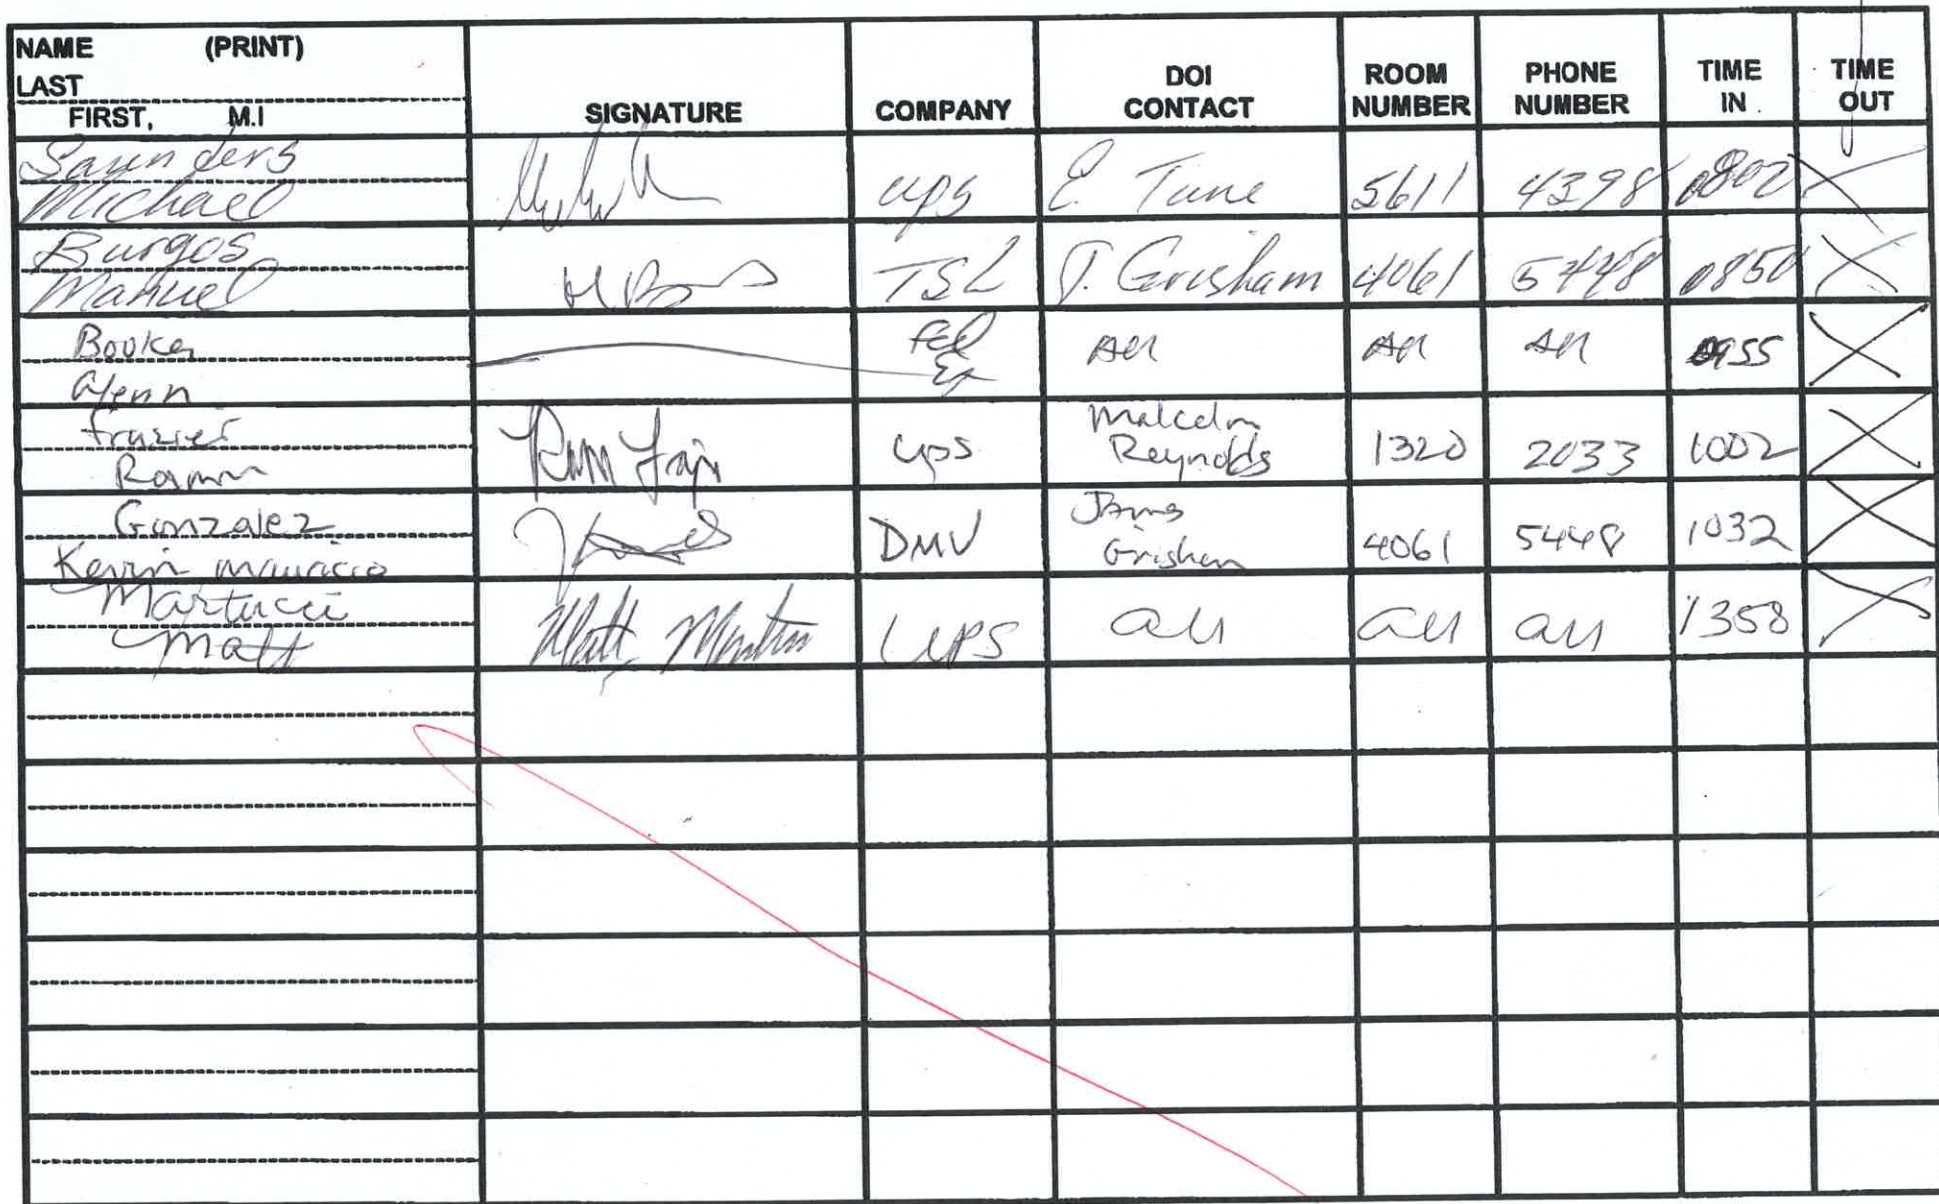 NAME (PRINT)
LAST
FIRST, M.I
SIGNATURE
COMPANY
DOI
CONTACT
ROOM
NUMBER
PHONE
NUMBER
TIME
IN
TIME
OUT
Saunders
Michael
ups
E. Tune
5611
4398
0802
X
Burgos
Manuel
TSL
J. Grisham
4061
5448
0850
X
Booker
Glenn
Fed
Ex
All
All
All
0955
X
Frazier
Ramon
ups
Malcolm
Reynolds
1320
2033
1002
X
Gonzalez
Kevin mauricio
DMV
James
Grisham
4061
5448
1032
X
Martucci
Matt
Matt
UPS
all
all
all
1358
X